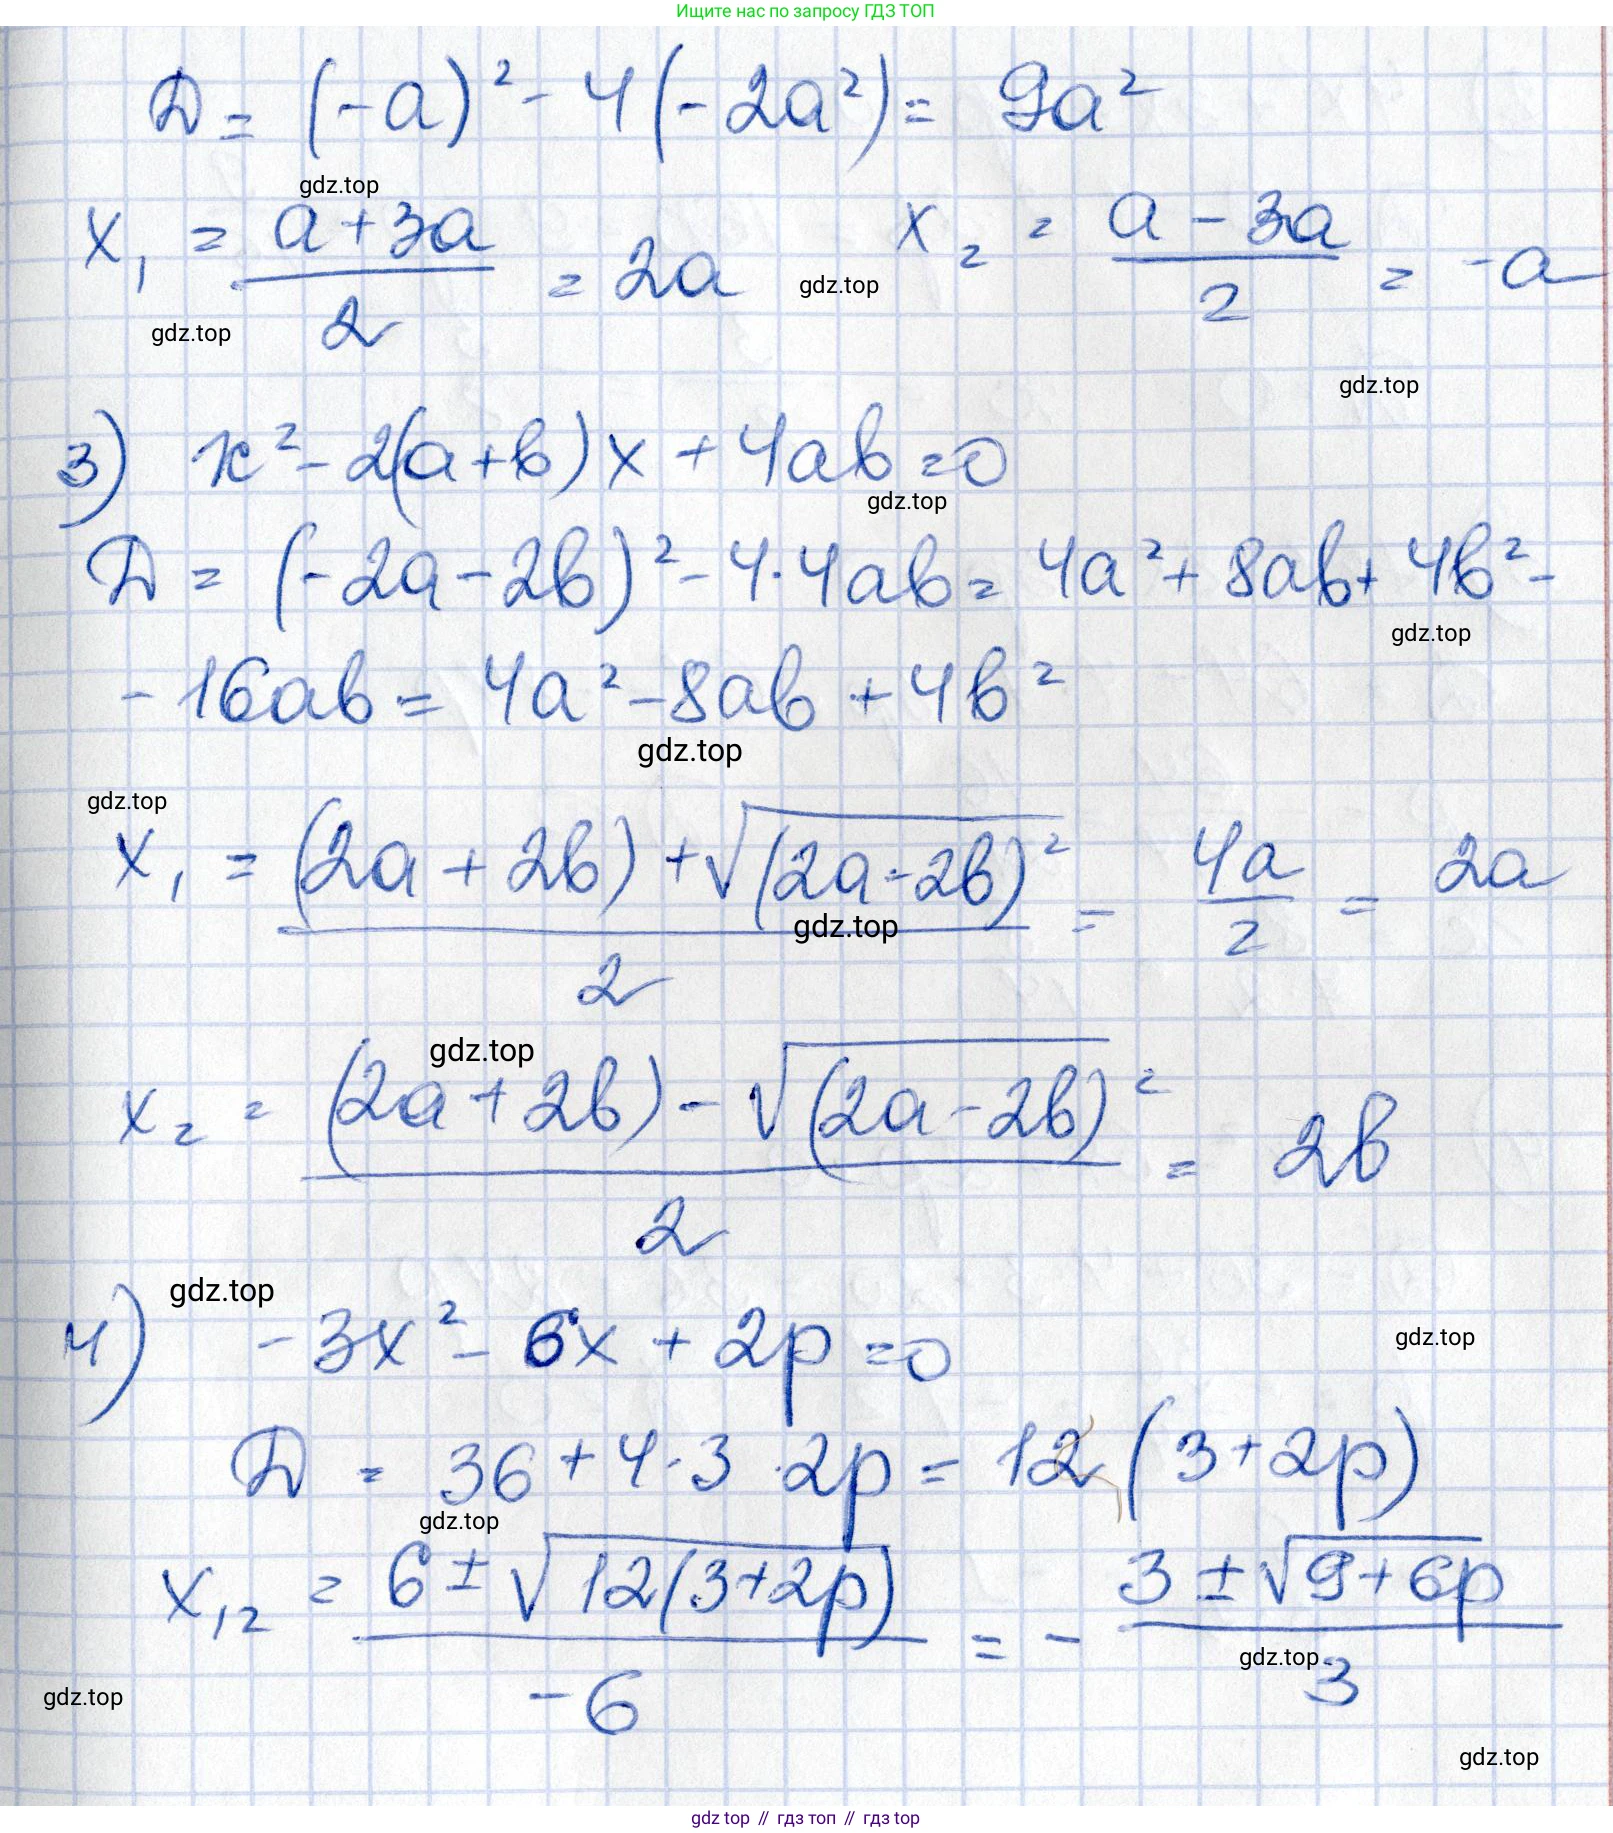 Ищите нас по запросу ГДЗ ТОП
D = (-a)² - 4(-2a²) = 9a²
gdz.top
x₁ = (a+3a)/2 = 2a gdz.top x₂ = (a-3a)/2 = -a
gdz.top
gdz.top
3) x² - 2(a+b)x + 4ab = 0
gdz.top
D = (-2a-2b)² - 4·4ab = 4a² + 8ab + 4b² -
gdz.top
- 16ab = 4a² - 8ab + 4b²
gdz.top
gdz.top
x₁ = ((2a+2b) + √(2a-2b)²)/2 = 4a/2 = 2a
gdz.top
gdz.top
x₂ = ((2a+2b) - √(2a-2b)²)/2 = 2b
gdz.top
4) -3x² - 6x + 2p = 0
gdz.top
D = 36 + 4·3·2p = 12(3+2p)
gdz.top
x₁₂ = (6 ± √12(3+2p))/-6 = - (3 ± √9+6p)/3
gdz.top
gdz.top
gdz.top
gdz top // гдз топ // гдз top